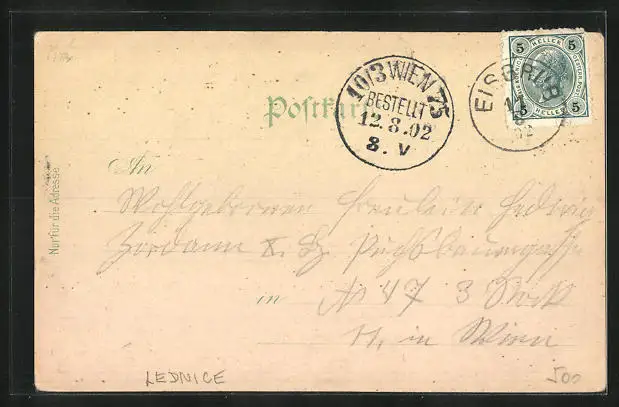 10/3 WIEN 75
BESTELLT
12.8.02
8.V
EISGRUB
5 HELLER 5
5 HELLER 5
Postkarte
An
Nur für die Adresse
Wohlgeborenen Fräulein Hedwig
X. Bz. Puchsbaumgasse
in No 47 3 Stock
in Wien
LEDNICE
500